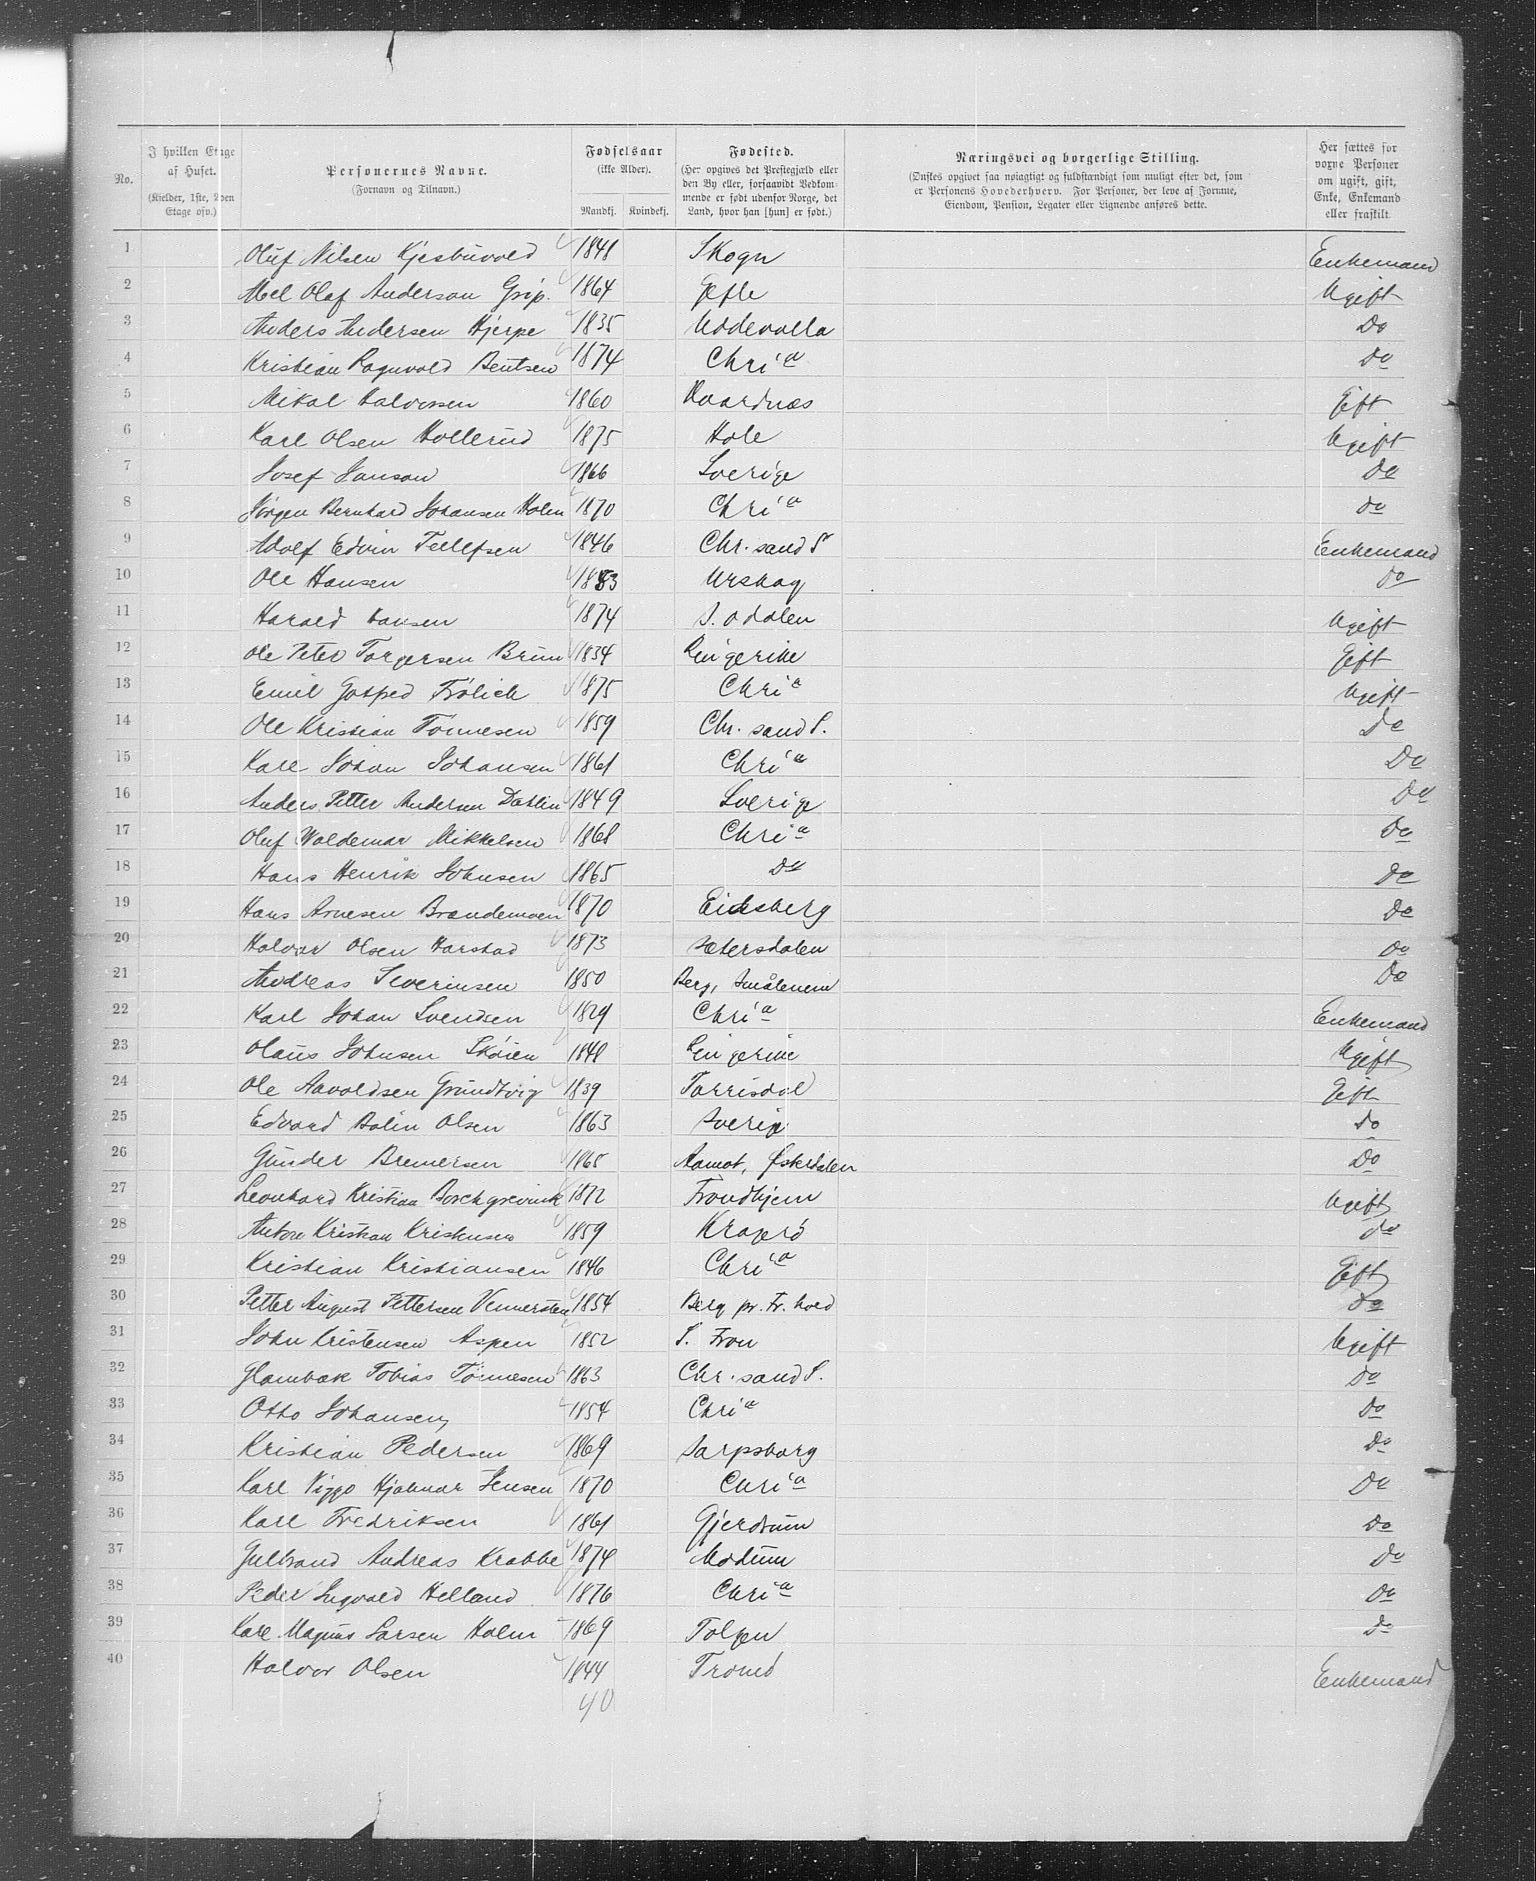 No.
I hvilken Etage af Huset.
(Kjelder, 1ste, 2den Etage osv.)
Personernes Navne.
(Fornavn og Tilnavn.)
Fødselsaar
(ikke Alder).
Mandkj. Kvindekj.
Fødested.
(Her opgives det Prestegjæld eller den By eller, forsaavidt Vedkommende er født udenfor Norge, det Land, hvor han [hun] er født.)
Næringsvei og borgerlige Stilling.
(Ønskes opgivet saa nøiagtigt og fuldstændigt som muligt efter det, som er Personens Hovederhverv. For Personer, der leve af Formue, Eiendom, Pension, Legater eller Lignende anføres dette.
Her sættes for voxne Personer om ugift, gift, Enke, Enkemand eller fraskilt.
1 Oluf Nilsen Kjesbuvold 1848 Skogn Enkemand
2 Olaf Anderson Grip. 1864 Gefle Ugift
3 Anders Andersen Hjerpe 1835 Uddevalla Do
4 Kristian Ragnvald Bentsen 1874 Chria Do
5 Mikal Halvorsen 1860 Gift
6 Karl Olsen Hollerud 1875 Hole Ugift
7 Josef Janson 1866 Sverige Do
8 Jørgen Bernhard Johansen Holm 1870 Chria do
9 Adolf Edvin Tellefsen 1846 Chr.sand S Enkemand
10 Ole Hansen 1853 Urskog Do
11 Harald Hansen 1874 S. Odalen Ugift
12 Ole Peter Torgersen Bruun 1834 Ringerike Gift
13 Emil Frölich 1875 Chria Ugift
14 Ole Kristian Tönnesen 1859 Chr.sand S. Do
15 Karl Johan Johansen 1861 Chria Do
16 Anders Petter Anderson Dahlin 1849 Sverige Do
17 Oluf Waldemar Mikkelsen 1868 Chria Do
18 Hans Henrik Johnsen 1865 Do Do
19 Hans Arnesen Brandemoen 1870 Eidsberg Do
20 Halvor Olsen Harstad 1873 Sætersdalen Do
21 Andreas Severinsen 1850 Berg, Smålenene Do
22 Karl Johan Svendsen 1829 Chria Enkemand
23 Olaus Johnsen Skøien 1848 Ringerike Ugift
24 Ole Aavoldsen Grundtvig 1839 Torrisdal Gift
25 Edvard Bolin Olsen 1863 Sverige Do
26 Gunder Bremersen 1865 Aamot, Østerdalen Do
27 Leonhard Kristian Borchgrevink 1872 Trondhjem Ugift
28 Anton Kristian Kristensen 1859 Kragerö do
29 Kristian Kristiansen 1846 Chria Gift
30 Petter August Pettersen Vennersten 1854 Berg pr. Fr.hald Do
31 John Kristensen Aspen 1852 S. Fron Ugift
32 Glambæk Tobias Tönnesen 1863 Chr.sand S. Do
33 Otto Johansen, 1854 Chria Do
34 Kristian Pedersen 1869 Sarpsborg Do
35 Karl Viggo Hjalmar Jensen 1870 Chria Do
36 Karl Fredriksen 1861 Gjerdrum Do
37 Gulbrand Andreas Krabbe 1874 Modum Do
38 Peder Ingvald Helland 1876 Chria Do
39 Karl Magnus Larsen Holm 1869 Tolgen Do
40 Halvor Olsen 1844 Tromö Enkemand
40